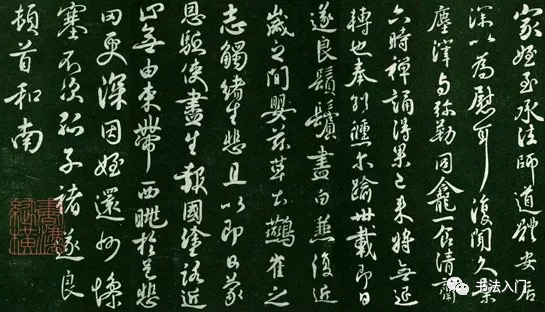 家姪至承法師道體安居
深以為慰耳復聞久棄
塵滓与弥勒同龕一食清齋
六時禪誦得果已來將無退
轉也奉別儵尔踰卅載即日
遂良鬚鬢盡白兼復近
歲之間嬰茲草土鷰雀之
志觸緒生悲且以即日蒙
恩驅使盡生報國塗路近
止無由束帶西眺於悒悲
罔更深因姪還州慘
塞不次孤子褚遂良
頓首和南
书法入门